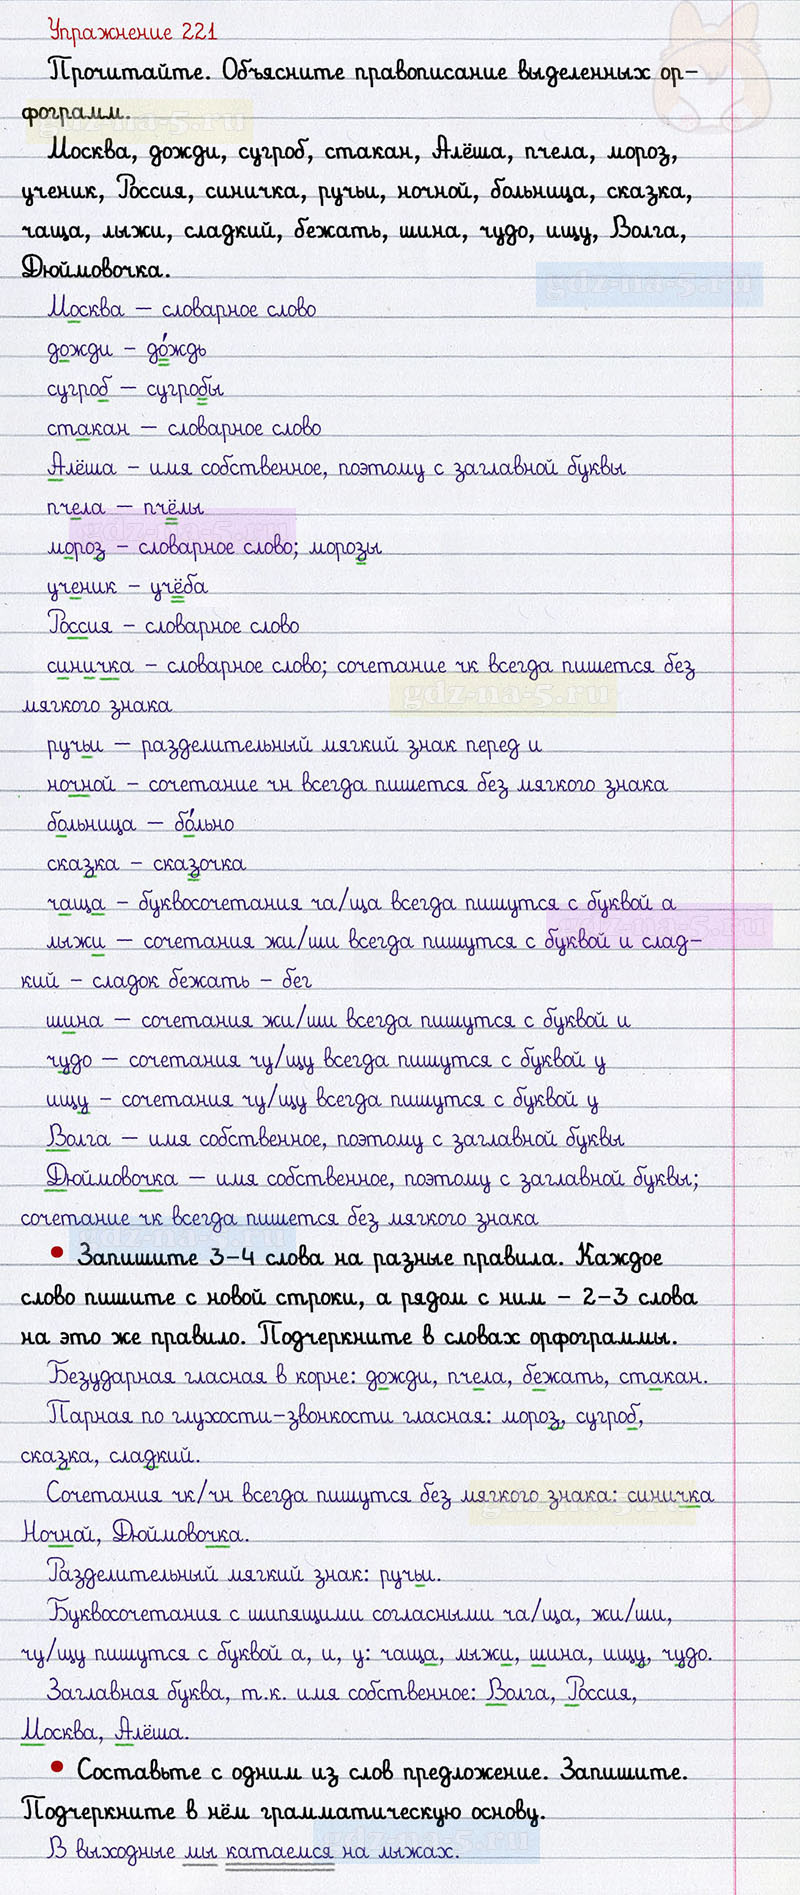 Упражнение 221
Прочитайте. Объясните правописание выделенных ор-
фограмм.
gdz-na-5.ru
Москва, дожди, сугроб, стакан, Алёша, пчела, мороз,
ученик, Россия, синичка, ручьи, ночной, больница, сказка,
чаща, лыжи, сладкий, бежать, шина, чудо, ищу, Волга,
Дюймовочка.
gdz-na-5.ru
Москва – словарное слово
дожди – до́ждь
сугроб – сугробы
стакан – словарное слово
Алёша – имя собственное, поэтому с заглавной буквы
пчела – пчёлы
gdz-na-5.ru
мороз – словарное слово; морозы
ученик – учёба
Россия – словарное слово
синичка – словарное слово; сочетание чк всегда пишется без
gdz-na-5.ru
мягкого знака
ручьи – разделительный мягкий знак перед и
ночной – сочетание чн всегда пишется без мягкого знака
больница – бо́льно
сказка – сказочка
чаща – буквосочетания ча/ща всегда пишутся с буквой а
gdz-na-5.ru
лыжи – сочетания жи/ши всегда пишутся с буквой и слад-
кий – сладок бежать – бег
шина – сочетания жи/ши всегда пишутся с буквой и
чудо – сочетания чу/щу всегда пишутся с буквой у
ищу – сочетания чу/щу всегда пишутся с буквой у
Волга – имя собственное, поэтому с заглавной буквы
Дюймовочка – имя собственное, поэтому с заглавной буквы;
сочетание чк всегда пишется без мягкого знака
gdz-na-5.ru
• Запишите 3-4 слова на разные правила. Каждое
слово пишите с новой строки, а рядом с ним – 2-3 слова
на это же правило. Подчеркните в словах орфограммы.
Безударная гласная в корне: дожди, пчела, бежать, стакан.
Парная по глухости-звонкости гласная: мороз, сугроб,
сказка, сладкий.
Сочетания чк/чн всегда пишутся без мягкого знака: синичка
gdz-na-5.ru
Ночнай, Дюймовочка.
Разделительный мягкий знак: ручьи.
Буквосочетания с шипящими согласными ча/ща, жи/ши,
чу/щу пишутся с буквой а, и, у: чаща, лыжи, шина, ищу, чудо.
Заглавная буква, т.к. имя собственное: Волга, Россия,
Москва, Алёша.
• Составьте с одним из слов предложение. Запишите.
Подчеркните в нём грамматическую основу.
В выходные мы катаемся на лыжах.
gdz-na-5.ru